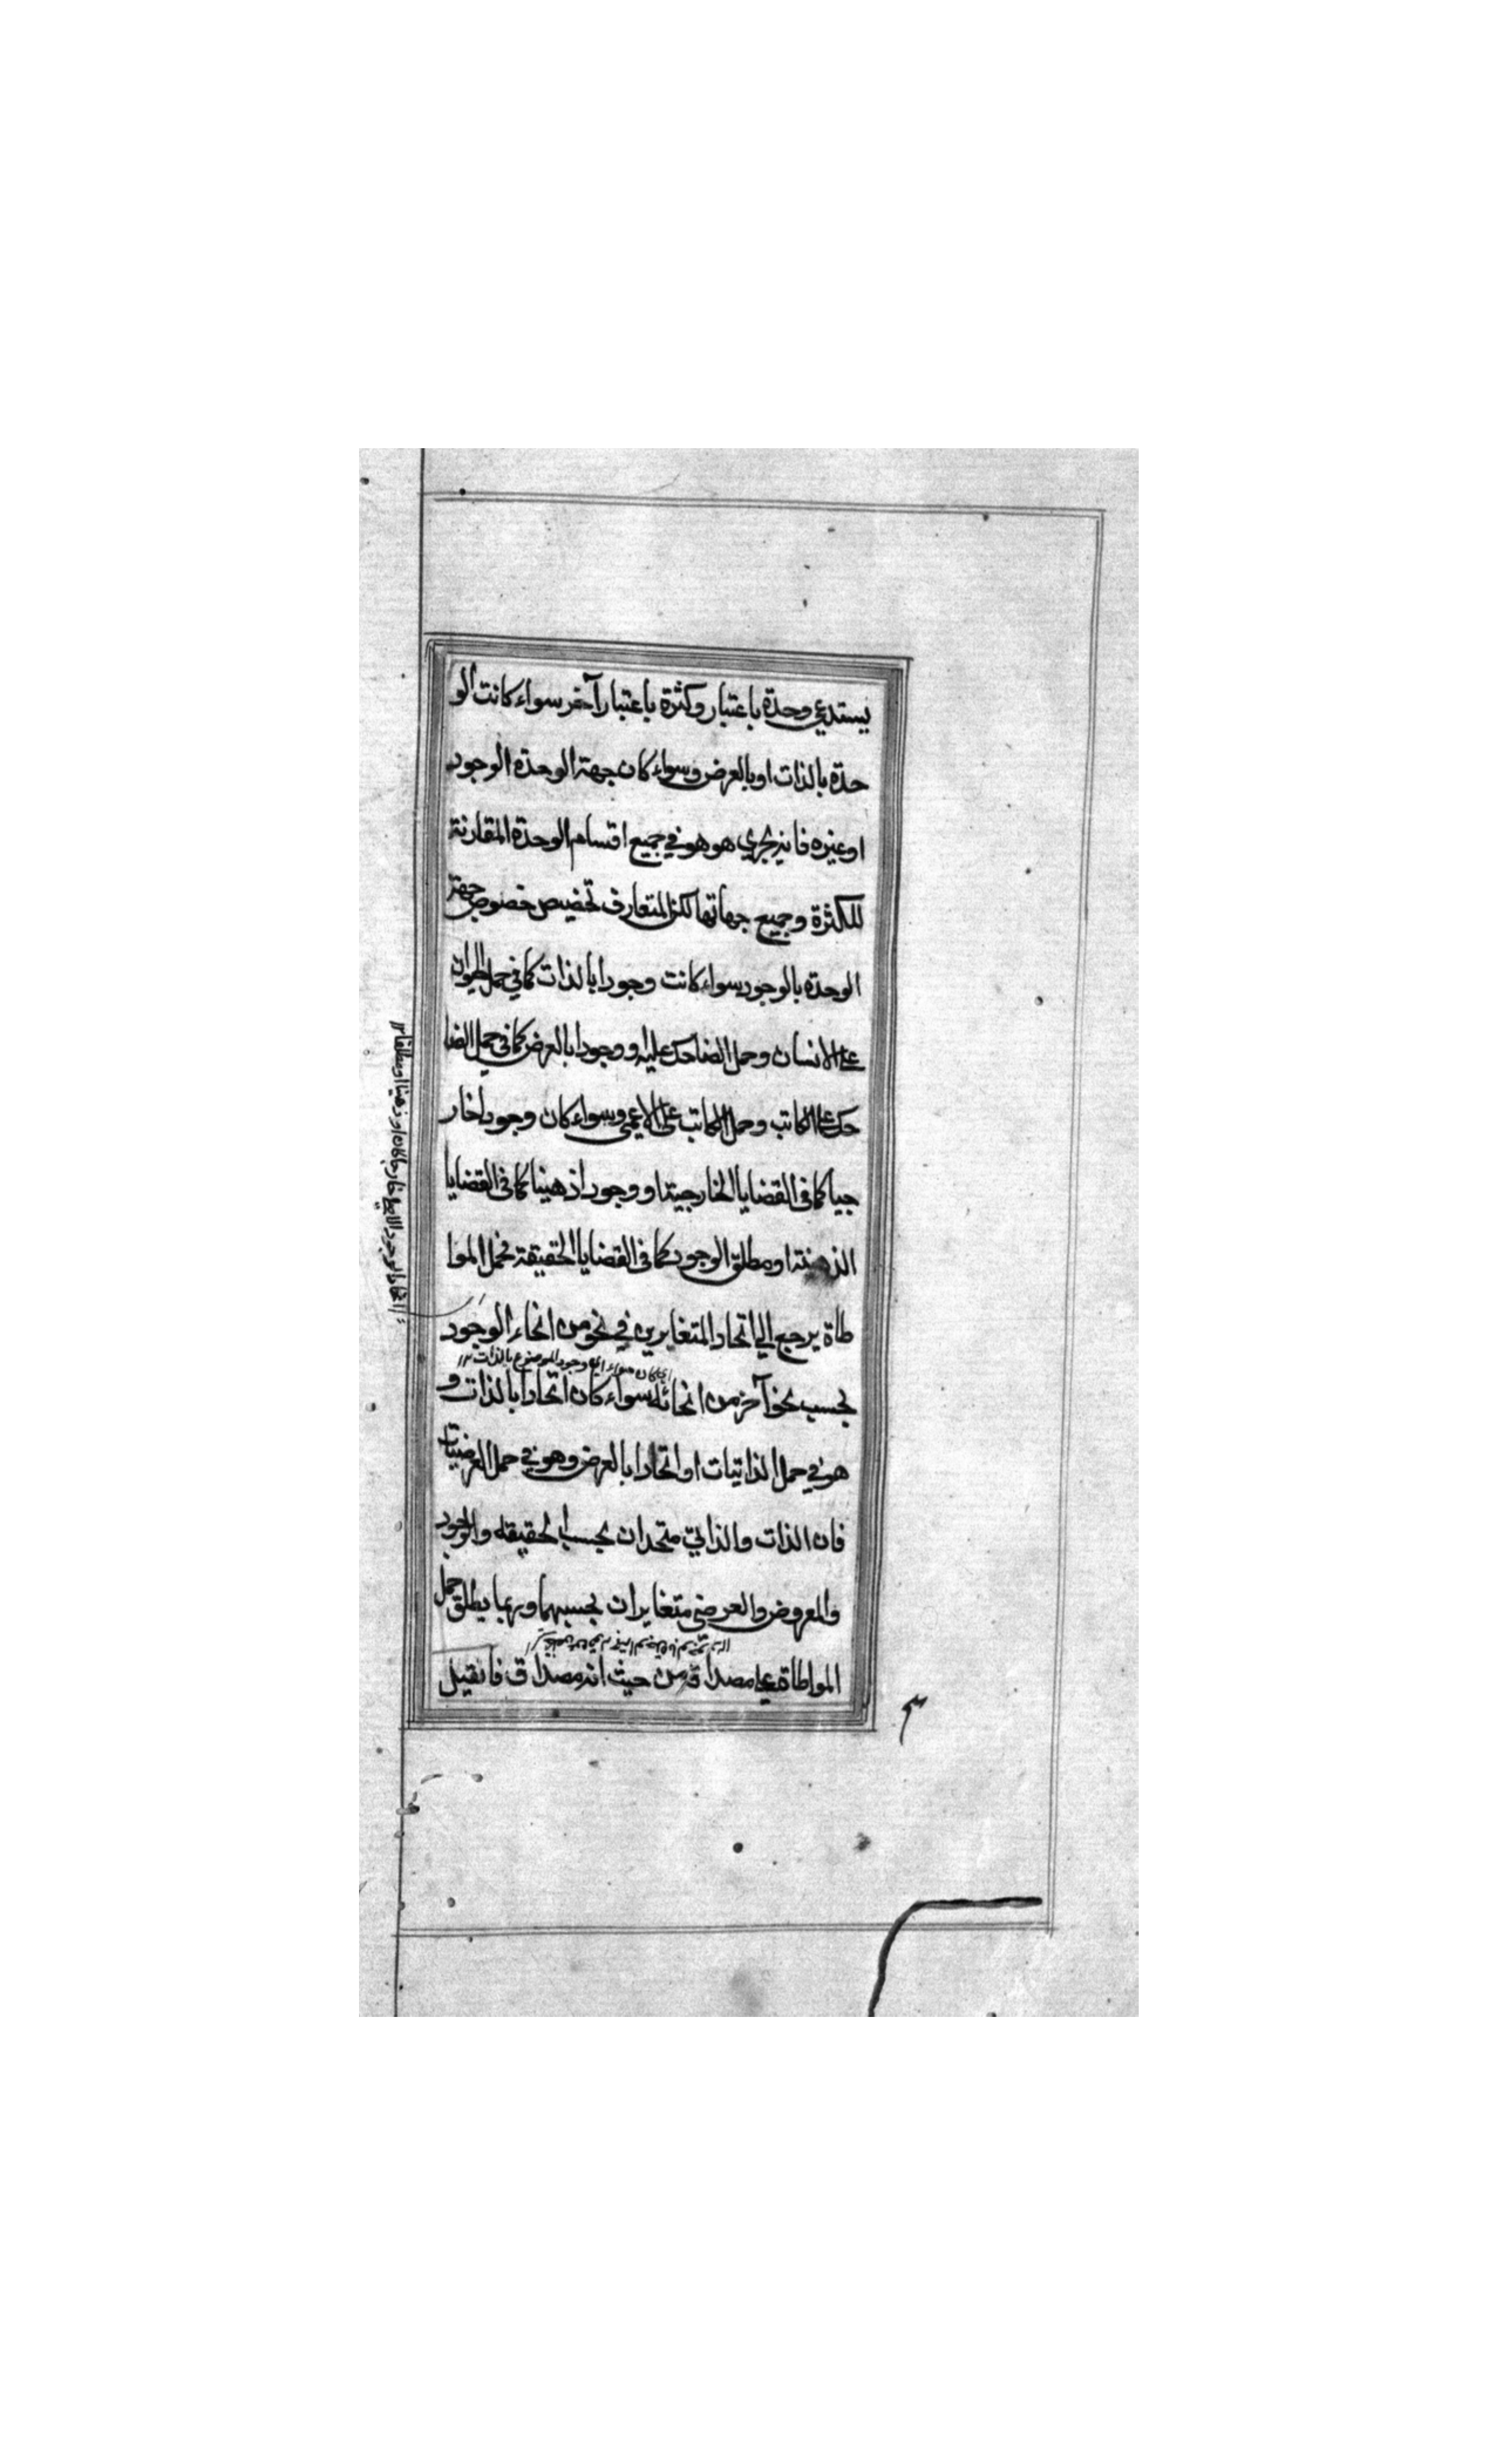 يستدعي وحدة باعتبار وكثرة باعتبار آخر سواء كانت الو
حدة بالذات او بالعرض وسواء كان جهة الوحدة الوجود
او غيره فانه يجري هو هو في جميع اقسام الوحدة المقارنة
للكثرة وجميع جهاتها لكن المتعارف تخصيص خصوص جهة
الوحدة بالوجود سواء كانت وجودا بالذات كما في حمل الحيوان
على الانسان وحمل الضاحك عليه او وجودا بالعرض كما في حمل الضا
حك على الكاتب وحمل الكاتب على الاعمى وسواء كان وجودا خار
جيا كما في القضايا الخارجية او وجودا ذهنيا كما في القضايا
الذهنية او مطلق الوجود كما في القضايا الحقيقة فحمل الموا
طاة يرجع الي اتحاد المتغايرين في نحو من انحاء الوجود
بحسب نحو آخر من انحائه سواء كان اتحادا بالذات و
هو في حمل الذاتيات او اتحادا بالعرض وهو في حمل العرضيات
فان الذات والذاتي متحدان بحسب الحقيقة والوجود
والمعروض والعرضي متغايران بحسبهما وربما يطلق حمل
المواطاة علي مصداقه من حيث انه مصداق فان قيل
وجود الموضوع بالذات ١٢
اتحاد الوجود خارجا كان او ذهنيا او مطلقا ١٢